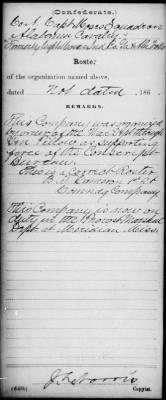 (Confederate.)
Co. A, Capt. Moses' Squadron
Alabama Cavalry.
Roster
of the organization named above,
dated Not dated, 186 .
REMARKS:
This Company was organized
by order of the War Dept through
Gen Pillow as supporting
force of the Conscript
Bureau.
This is a correct Roster
B. Cameron 1st Lt
Commdg Company
This Company is now on
duty in the Provost Marshal
Dept at Meridian Miss.
Copyist.